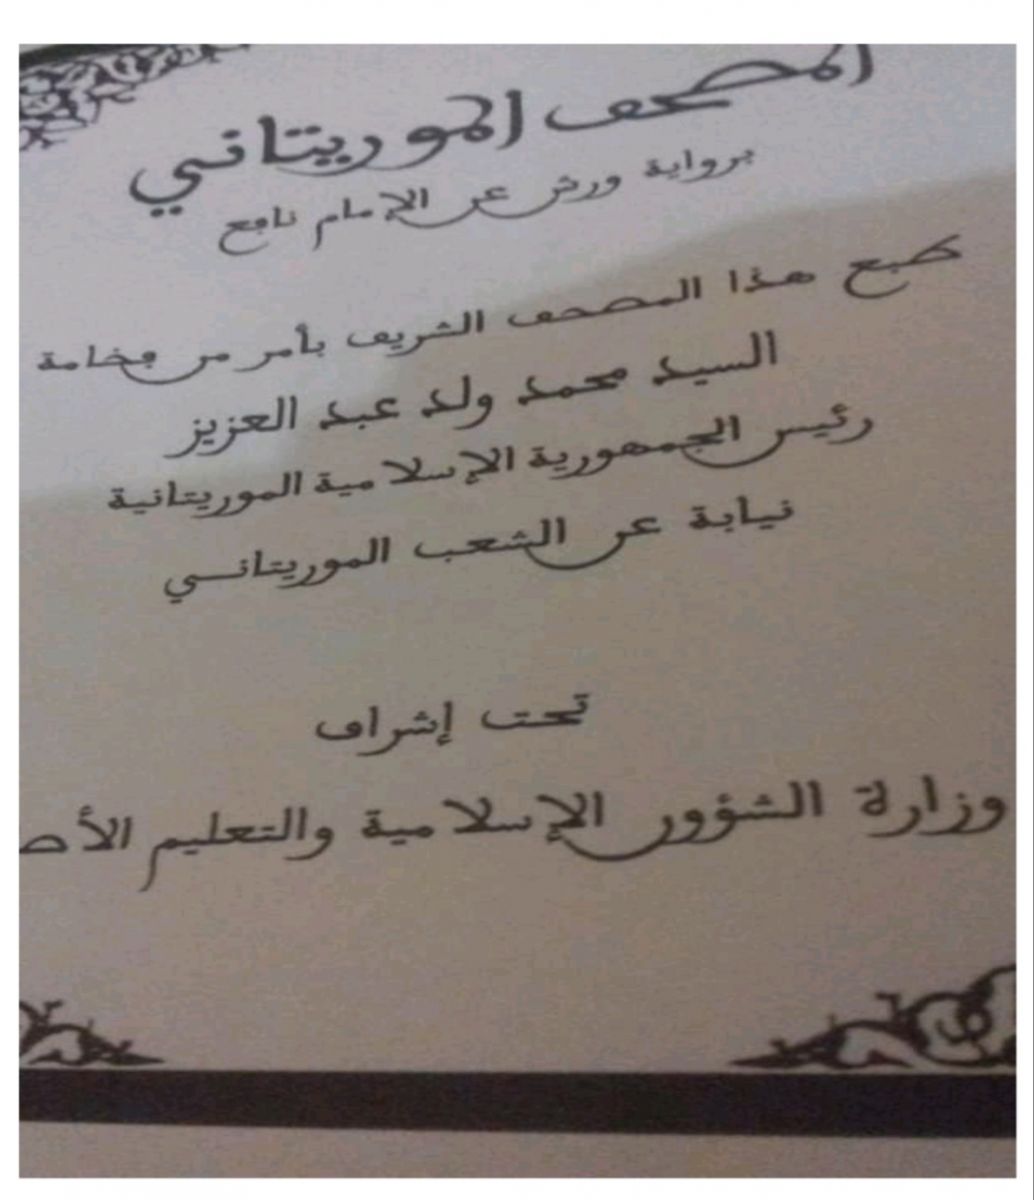 المصحف الموريتاني
برواية ورش عن الإمام نافع
طبع هذا المصحف الشريف بأمر من فخامة
السيد محمد ولد عبد العزيز
رئيس الجمهورية الإسلامية الموريتانية
نيابة عن الشعب الموريتاني
تحت إشراف
وزارة الشؤون الإسلامية والتعليم الأص